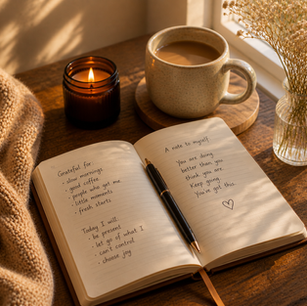 Grateful for
• slow mornings
• good coffee
• people who get me
• little moments
• fresh starts
Today I will
• be present
• let go of what I
can't control
• choose joy
A note to myself
You are doing
better than you
think you are.
Keep going.
You've got this.